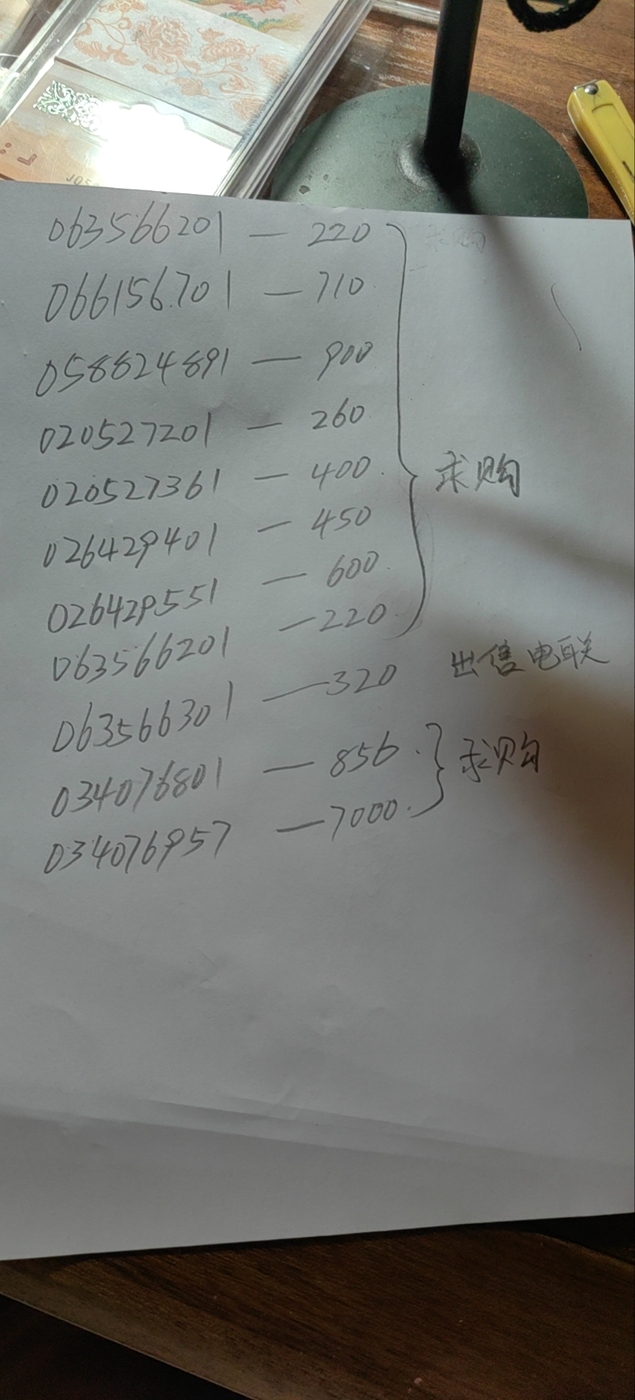 063566201 — 220
066156701 — 710
058824891 — 900
020527201 — 260
020527361 — 400
求购
026429401 — 450
026429551 — 600
063566201 — 220
063566301 — 320 出售电联
034076801 — 856
求购
034076957 — 7000